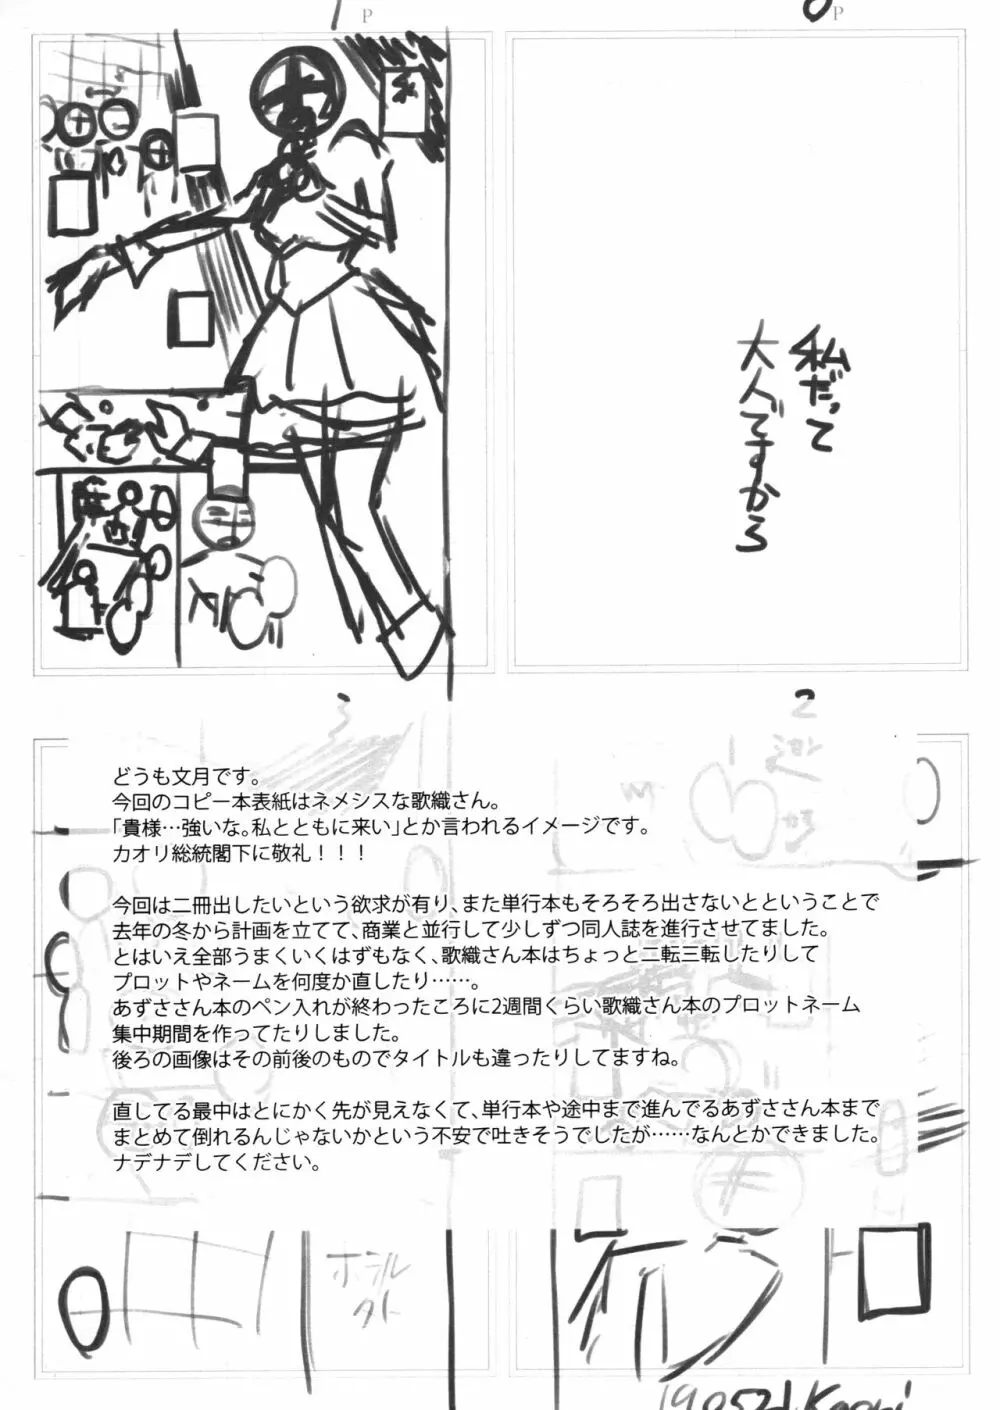 P
P
私だって
大人ですから
3
2
どうも文月です。
今回のコピー本表紙はネメシスな歌織さん。
「貴様…強いな。私とともに来い」とか言われるイメージです。
カオリ総統閣下に敬礼！！！
今回は二冊出したいという欲求が有り、また単行本もそろそろ出さないとということで
去年の冬から計画を立てて、商業と並行して少しずつ同人誌を進行させてました。
とはいえ全部うまくいくはずもなく、歌織さん本はちょっと二転三転したりして
プロットやネームを何度か直したり……。
あずささん本のペン入れが終わったころに2週間くらい歌織さん本のプロットネーム
集中期間を作ってたりしました。
後ろの画像はその前後のものでタイトルも違ったりしてますね。
直してる最中はとにかく先が見えなくて、単行本や途中まで進んでるあずささん本まで
まとめて倒れるんじゃないかという不安で吐きそうでしたが……なんとかできました。
ナデナデしてください。
ホテル